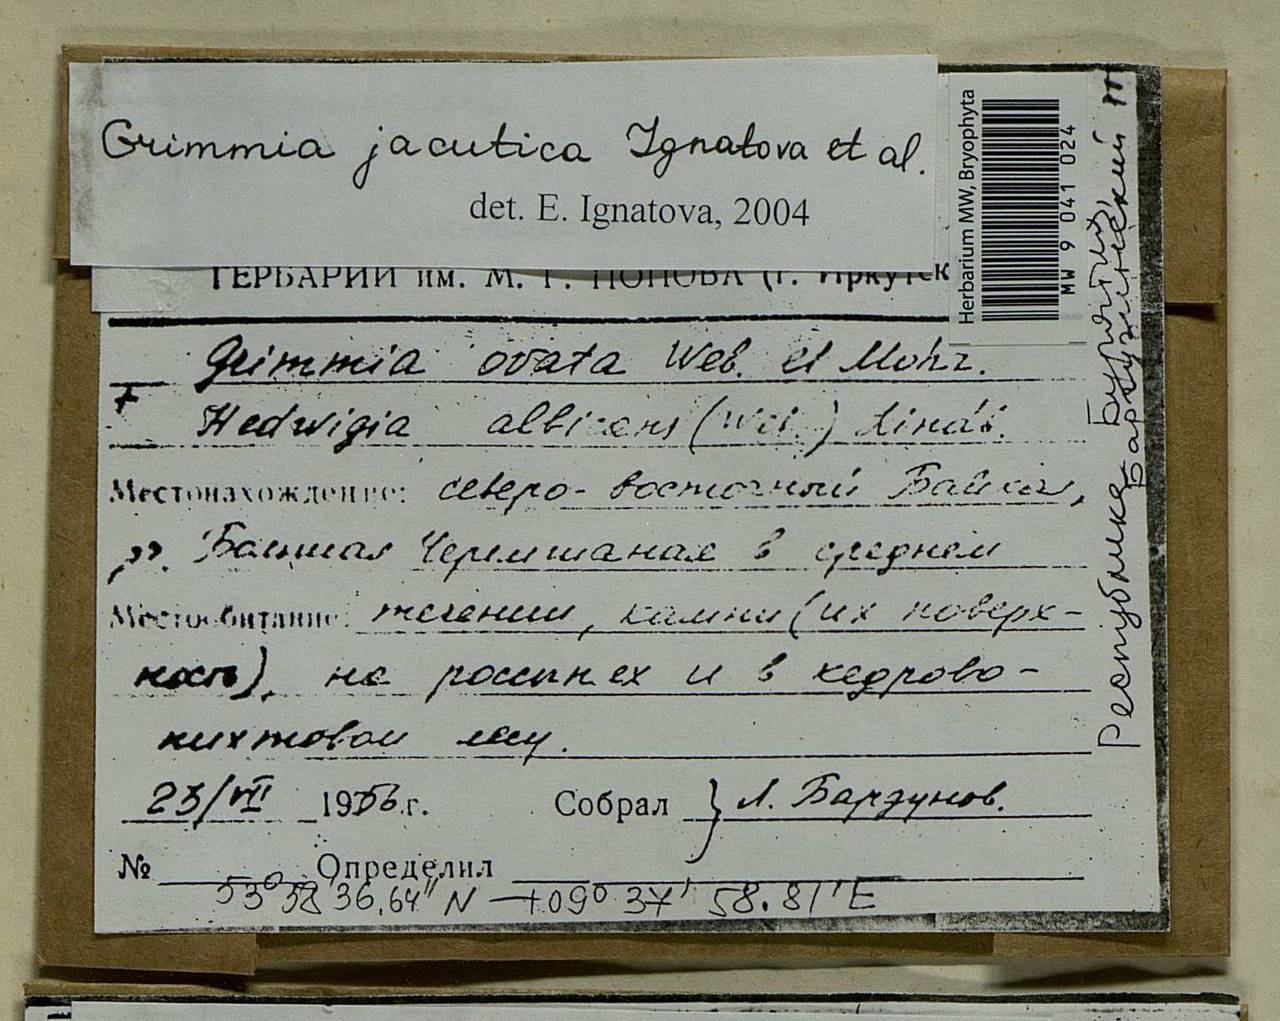 Grimmia jacutica Ignatova et al.
det. E. Ignatova, 2004
Herbarium MW, Bryophyta
MW 9 041 024
ГЕРБАРИЙ им. М. Г. ПОПОВА (г. Иркутск
Grimmia ovata Web. et Mohr.
+
Hedwigia albicans (Web.) Lindb.
Местонахождение: северо-восточный Байкал,
р. Большая Черемшаная в среднем
Местообитание: течении, камни (их поверх-
ность), на россыпях и в кедрово-
пихтовом лесу.
23/VII 1956 г. Собрал } Л. Бардунов.
№ Определил
53°58'36,64" N 109° 37' 58.81" E
Республика Бурятия,
Баргузинский